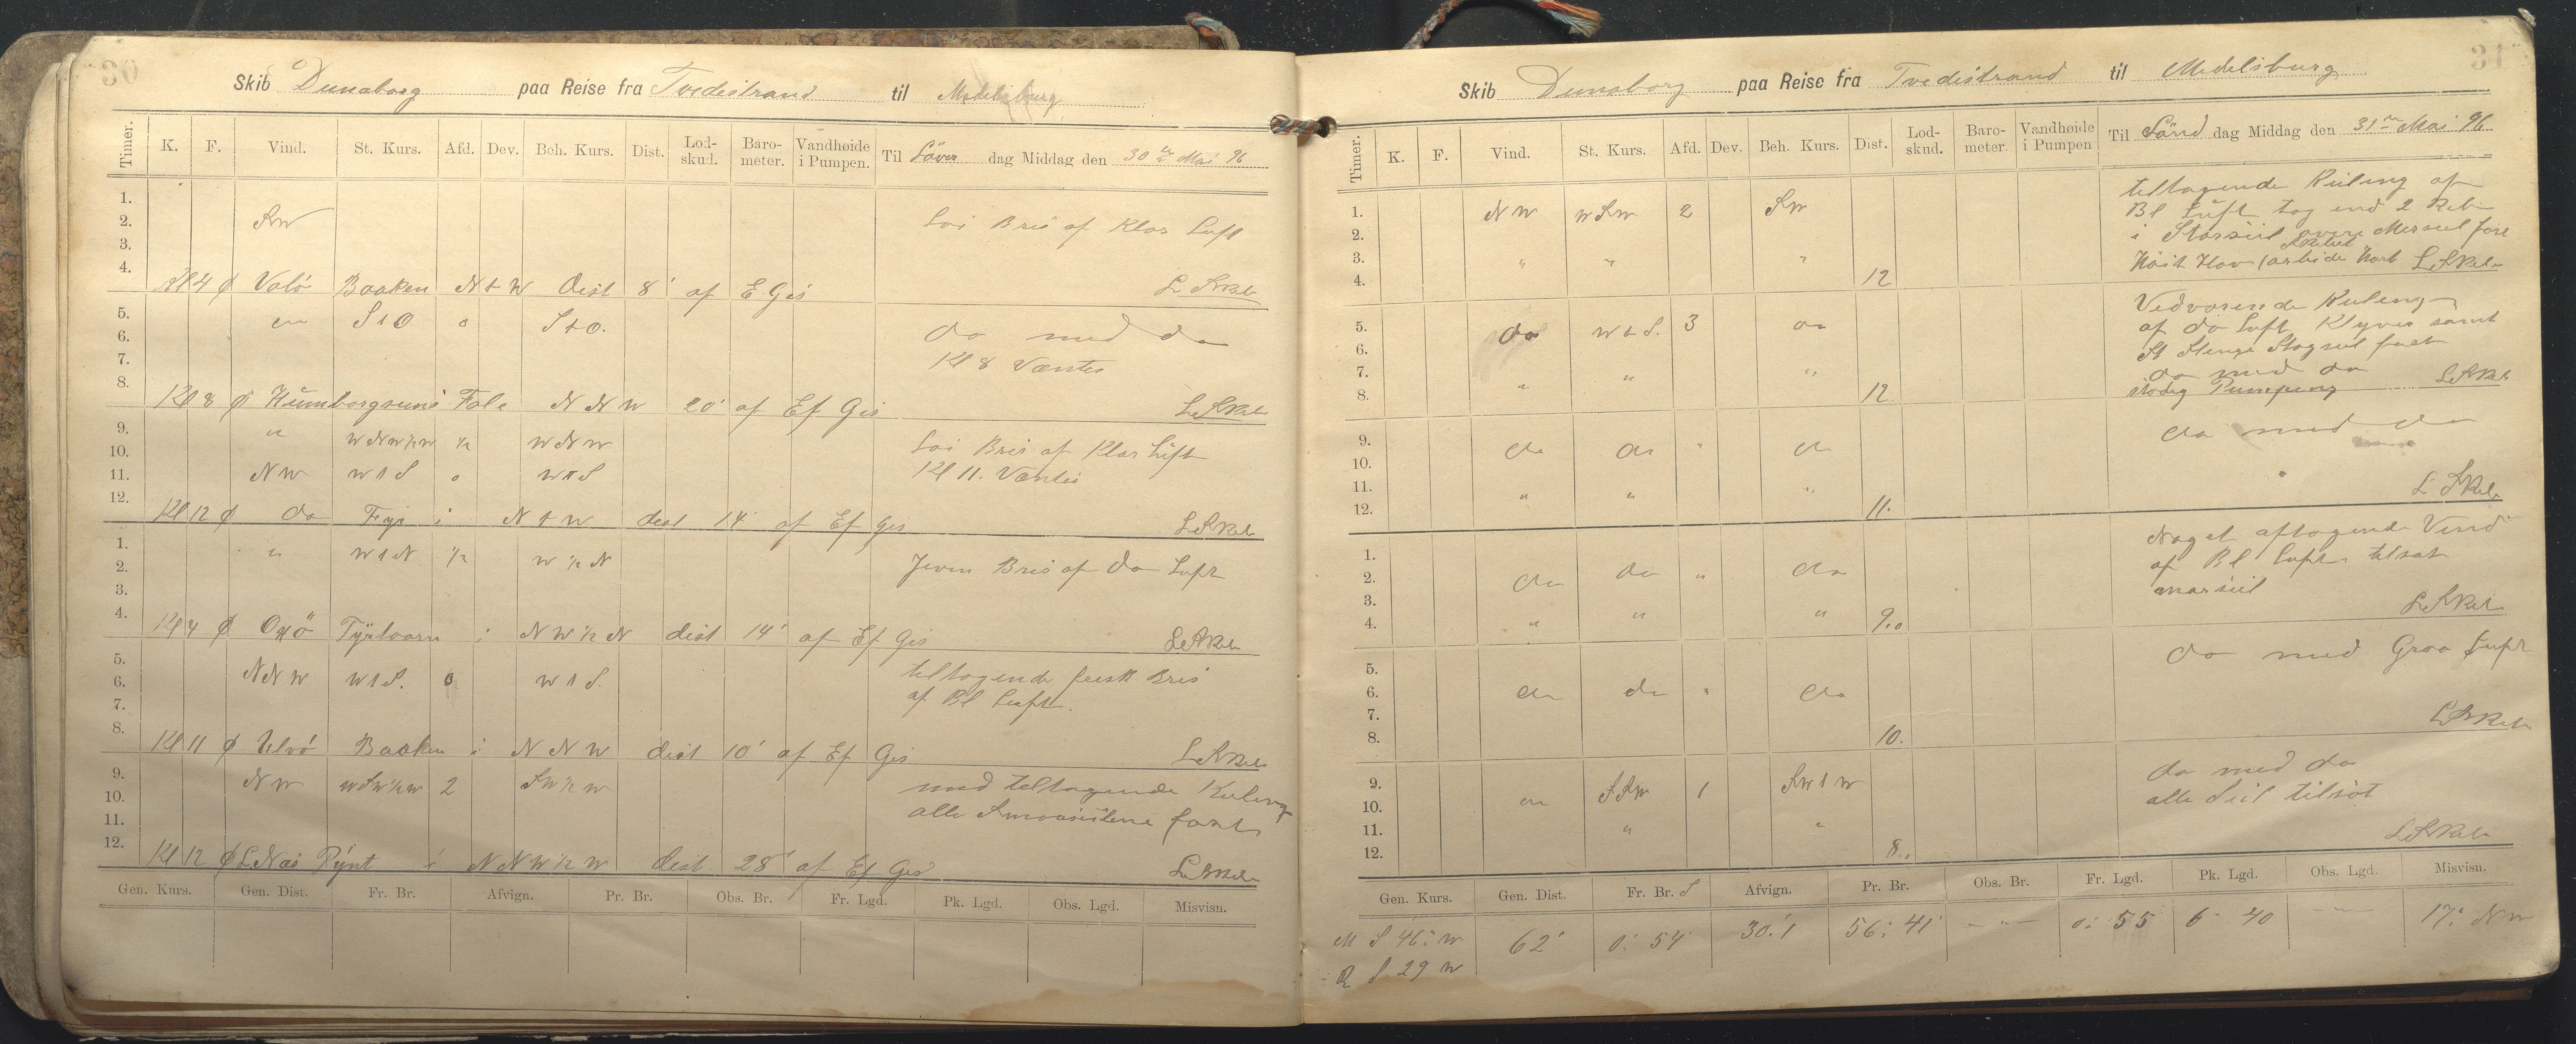 30
Skib Dunaborg paa Reise fra Tvedestrand til Medelsburg
Timer. K. F. Vind. St. Kurs. Afd. Dev. Beh. Kurs. Dist. Lod-skud. Baro-meter. Vandhøide i Pumpen. Til Löver dag Middag den 30te Mai 96
1.
2. SW Lai Bris af Klar Luft
3.
4.
Kl 4 ϕ Valö Baaken N t W Dist 8' af E Gis
5. do S t O 0 S t O. do med do
6. Kl 8 Vantes
7.
8.
Kl 8 ϕ Humborgsund Fale N N W 20' af Ef Gis
9. " WNW½W ½ WNW Lai Bris af Klar Luft
10. Kl 11. Vantes
11. NW W t S 0 W t S
12.
Kl 12 ϕ do Fyr i N t W dist 14 af Ef Gis
1. " W t N ½ W ½ N Jevn Bris af do Luft
2.
3.
4.
Kl 4 ϕ Oxö Fyrtaarn i NW½N dist 14' af Ef Gis
5. NNW W t S. 0 W t S. tiltagende frisk Bris
6. af Bl Luft.
7.
8.
Kl 11 ϕ Ulvö Baaken i N N W dist 10' af Ef Gis
9. NW WSW½W 2 SW½W med tiltagende Kuling
10. alle Smaaseilene fast
11.
12.
Kl 12 ϕ L Næs Pynt i NNW½W dist 28' af Ef Gis
Gen. Kurs. Gen. Dist. Fr. Br. Afvign. Pr. Br. Obs. Br. Fr. Lgd. Pk. Lgd. Obs. Lgd. Misvisn.
31
Skib Dunaborg paa Reise fra Tvedestrand til Medelsburg
Timer. K. F. Vind. St. Kurs. Afd. Dev. Beh. Kurs. Dist. Lod-skud. Baro-meter. Vandhøide i Pumpen Til Sönd dag Middag den 31te Mai 96
1. NW WSW 2 SW tiltagende Kuling af
2. Bl Luft tog ind 2 Reb
3. " " " i Storseil övre Mersseil fast
4. 12 Höit Hav
5. do W t S. 3 do Vedvarende Kuling
6. af do Luft Klyver samt
7. " " " St Stenge Stagseil fast
8. 12 do med do
stadig Pumpning
9. do do " do do med do
10.
11. " " "
12. 11.
1. do do " do Noget aftagende Vind
2. af Bl Luft tilsat
3. " " "
4. 9.0
5. do med Graa Luft
6. do do " do
7.
8. 10.
9. do SSW 1 SW t W do med do
10. alle Seil tilsat
11. " "
12. 8..
Gen. Kurs. Gen. Dist. Fr. Br. S Afvign. Pr. Br. Obs. Br. Fr. Lgd. Pk. Lgd. Obs. Lgd. Misvisn.
M S 46° W 62' 0° 54 30.1 56° 41' - " - 0° 55 6° 40 - " - 17° NW
R S 29 W